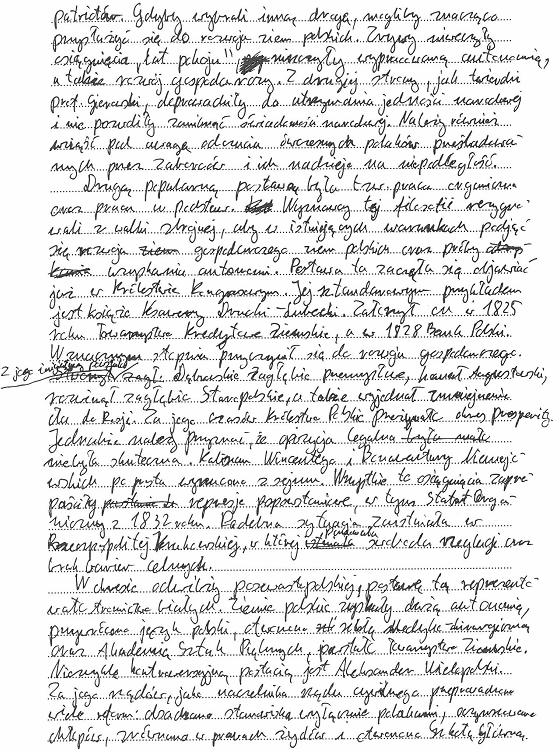 patriotów. Gdyby wybrali inną drogę, mogliby znacząco
przysłużyć się do rozwoju ziem polskich. Zrywy niweczyły
osiągnięcia „lat pokoju", niszczyły wypracowaną autonomię,
a także rozwój gospodarczy. Z drugiej strony, jak twierdzi
prof. Gierowski, doprowadziły do utrzymania jedności narodowej
i nie pozwoliły zaniknąć świadomości narodowej. Należy również
wziąść pod uwagę odczucia ówczesnych polaków prześladowa-
nych przez zaborców i ich nadzieje na niepodległość.
Drugą popularną postawą była tzw. praca organiczna
oraz praca u podstaw. Wyznawcy tej filozofii rezygno-
wali z walki zbrojnej, aby w istniejących warunkach podjąć
się rozwoju gospodarczego ziem polskich oraz próby
uzyskania autonomii. Postawa ta zaczęła się objawiać
już w Królestwie Kongresowym. Jej sztandarowym przykładem
jest książę Ksawery Drucki-Lubecki. Założył on w 1825
roku Towarzystwo Kredytowe Ziemskie, a w 1828 Bank Polski.
W znacznym stopniu przyczynił się do rozwoju gospodarczego.
Z jego inicjatywy powstało
zagł. Dąbrowskie Zagłębie przemysłowe, kanał Augustowski,
rozwinął zagłębie Staropolskie, a także wyjednał zmniejszenie
cła do Rosji. Za jego czasów Królestwo Polskie przeżywało okres prosperity.
Jednakże należy przyznać, że opozycja legalna
nie była skuteczna. Kaliszan Wincentego i Bonawentury Niemojo-
wskich po prostu wyrzucono z sejmu. Wszystkie te osiągnięcia zaprze-
paściły represje popowstaniowe, w tym Statut Orga-
niczny z 1832 roku. Podobna sytuacja zaistniała w
Rzeczpospolitej Krakowskiej, w której panowała swoboda religii oraz
brak barier celnych.
W okresie odwilży posewastopolskiej, postawę tą reprezento-
wało stronnictwo białych. Ziemie polskie uzyskały dużą autonomię,
przywrócono język polski, otworzono szkołę medyko-chirurgiczną
oraz Akademię Sztuk Pięknych, powstało Towarzystwo Ziemskie.
Niezwykle kontrowersyjną postacią jest Aleksander Wielopolski.
Za jego rządów, jako naczelnika rządu cywilnego przeprowadzono
wiele reform: obsadzono stanowiska wyłącznie polakami, oczynszowano
chłopów, zrównano w prawach żydów i otworzono Szkołę Główną.